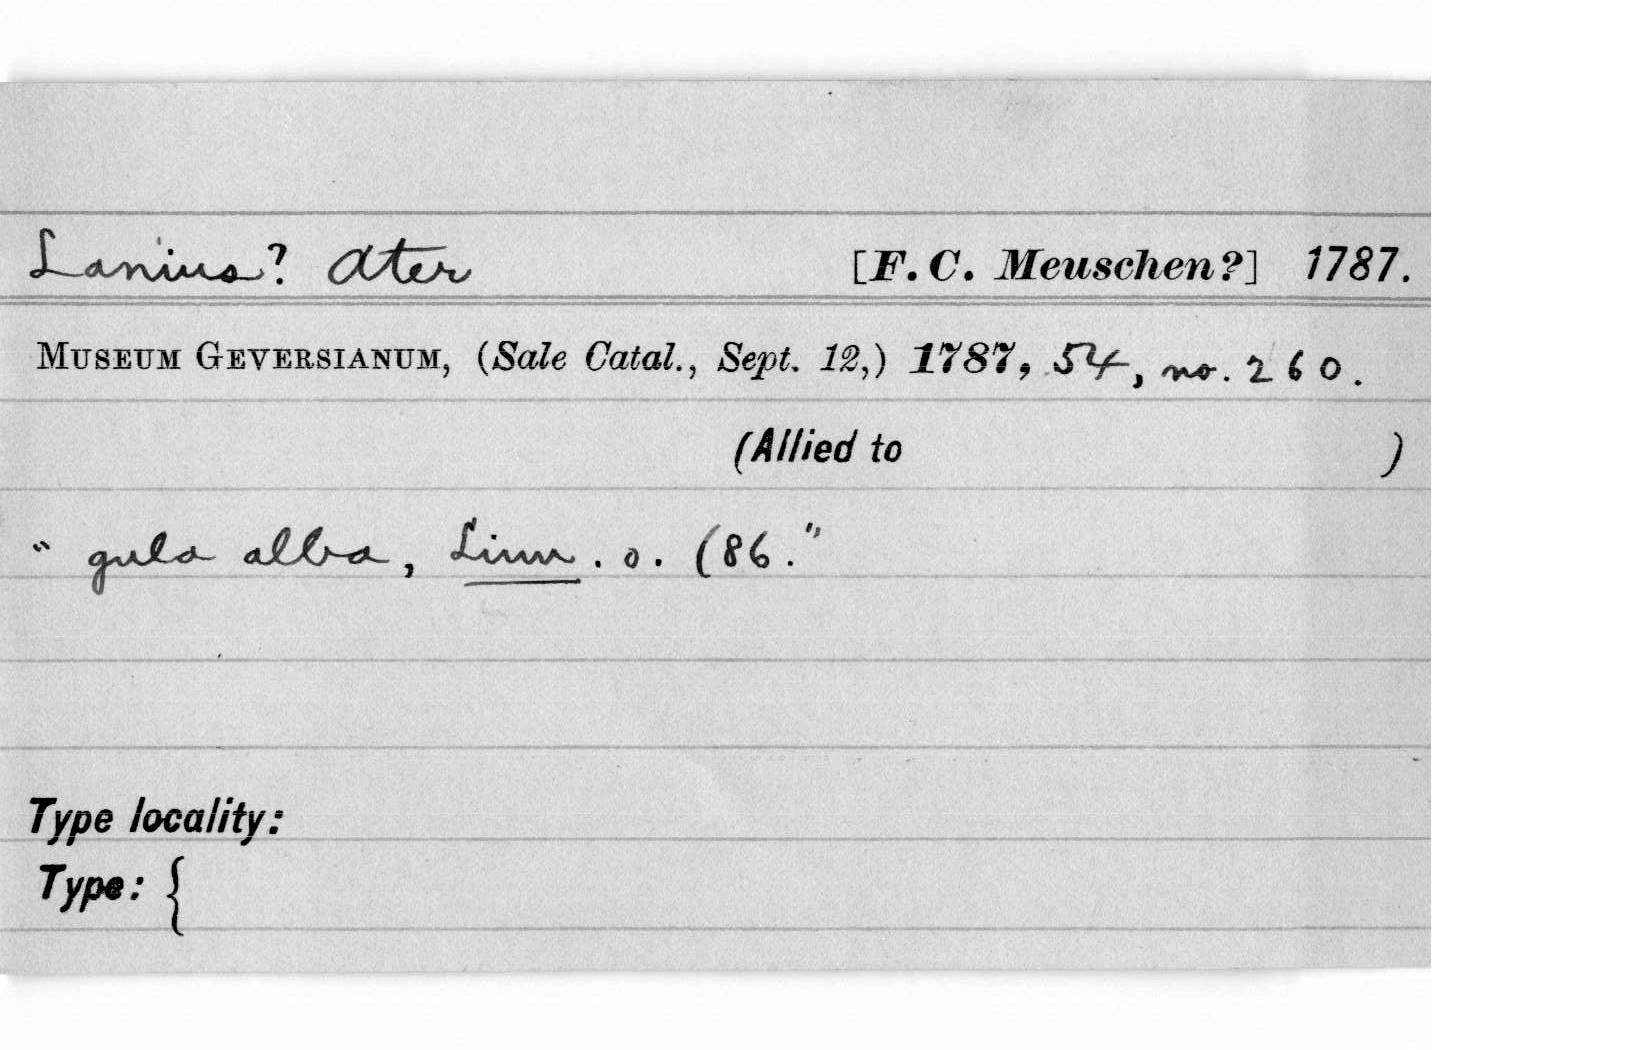 Lanius? Ater [F. C. Meuschen?] 1787.
Museum Geversianum, (Sale Catal., Sept. 12,) 1787, 54, no. 260.
(Allied to )
" gula alba, Linn. o. (86."
Type locality:
Type: {